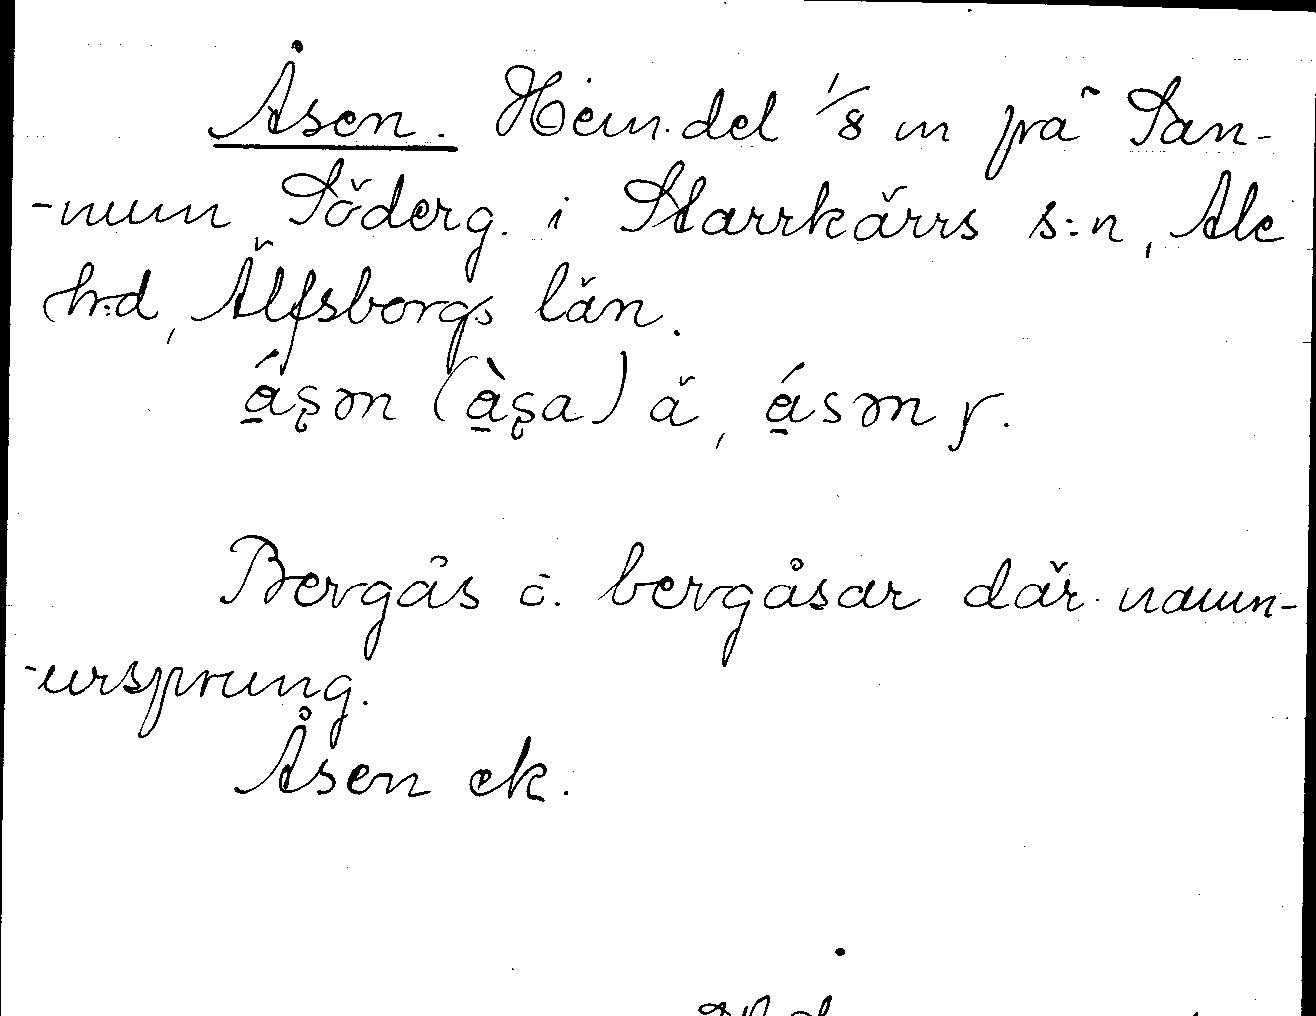 Åsen. Hem.del 1/8 m på San-
-num Söderg. i Starrkärrs s:n, Ale
h:d, Älfsborgs län.
á̱s̨ən (à̱s̨a) å, á̱sən γ.
Bergås o. bergåsar där namn-
-ursprung.
Åsen ek.